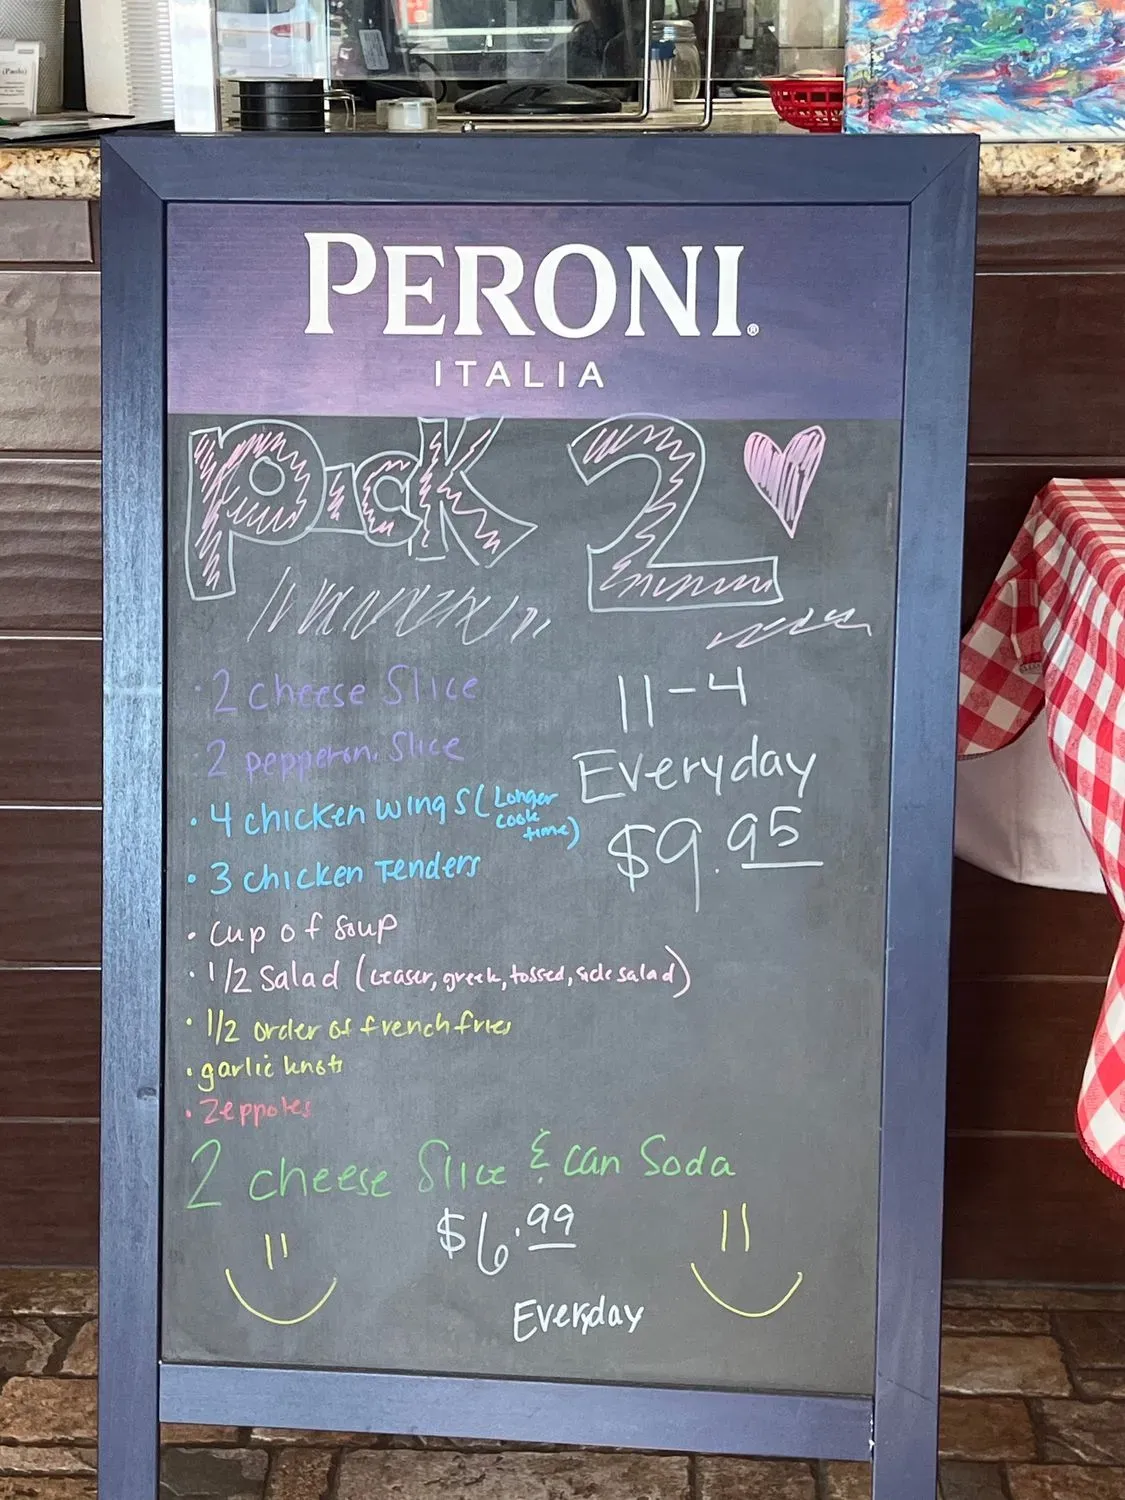 (Paolo)
PERONI®
ITALIA
Pick 2
· 2 cheese Slice
· 2 pepperoni Slice
· 4 chicken wings (Longer cook time)
· 3 chicken Tenders
· cup of soup
· 1/2 Salad (ceaser, greek, tossed, side salad)
· 1/2 order of french fries
· garlic knots
· Zeppoles
11-4
Everyday
$9.95
2 cheese Slice & can Soda
$6.99
Everyday